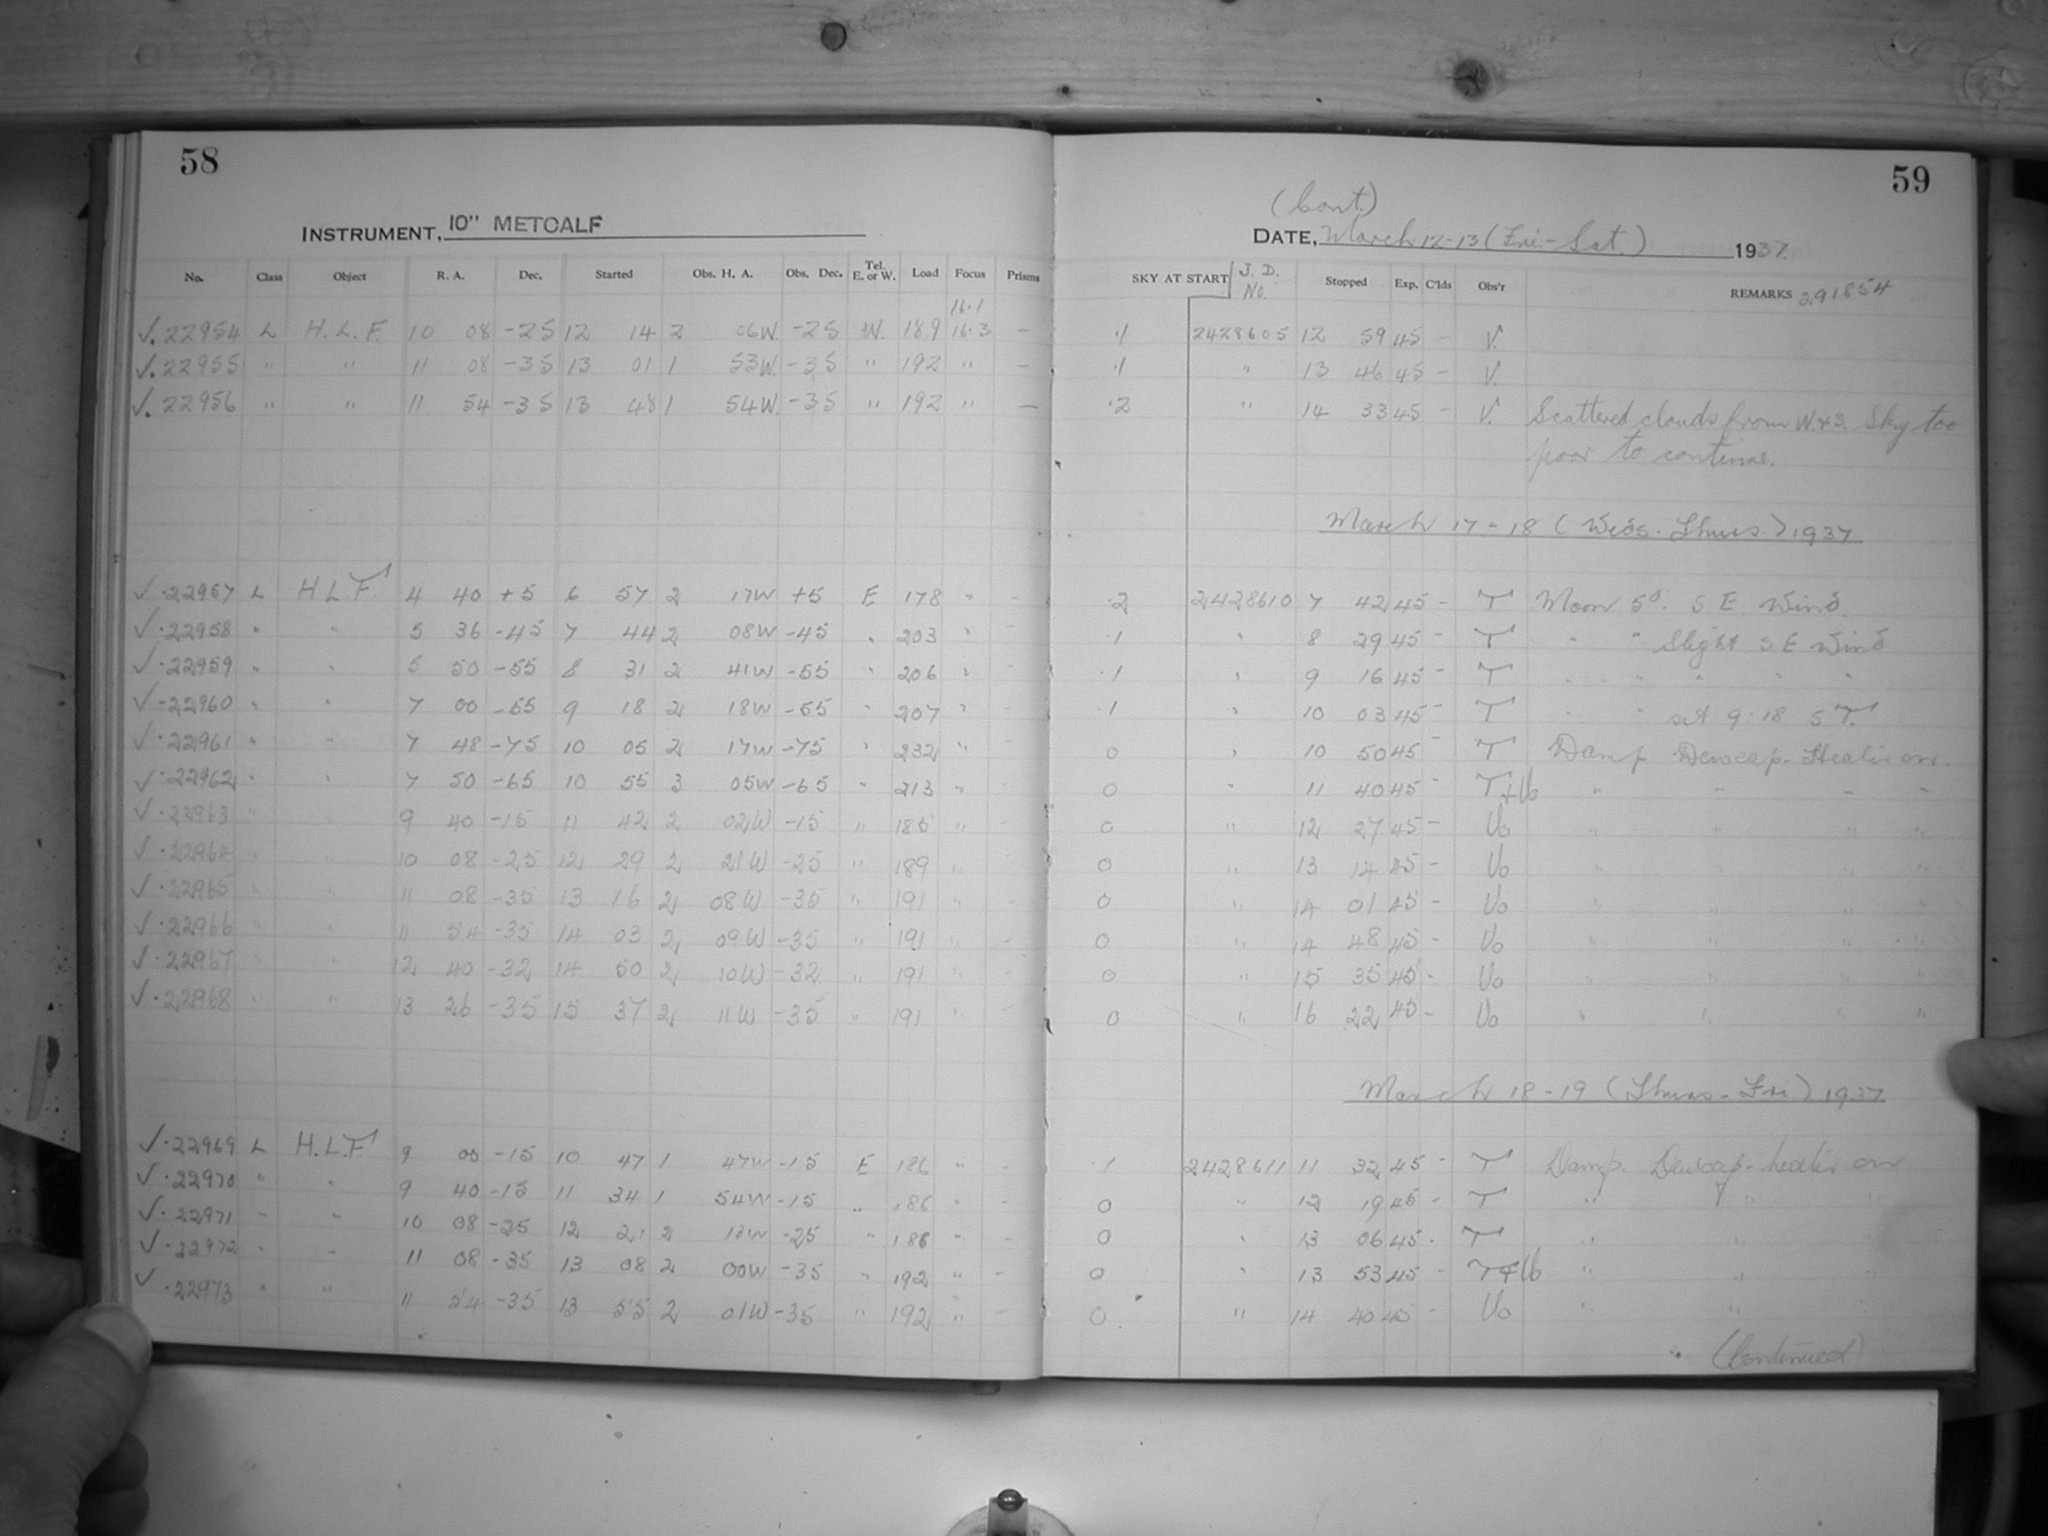 58
INSTRUMENT, 10" METCALF
No. Class Object R. A. Dec. Started Obs. H. A. Obs. Dec. Tel. E. or W. Load Focus Prisms
16.1
√.22954 L H.L.F. 10 08 -25 12 14 2 06W. -25 W. 189 16.3 —
√.22955 " " 11 08 -35 13 01 1 53W. -35 " 192 " —
√.22956 " " 11 54 -35 13 48 1 54W. -35 " 192 " —
√.22957 L H L F. 4 40 +5 6 57 2 17W +5 E 178 " -
√.22958 " " 5 36 -45 7 44 2 08W -45 " 203 " -
√.22959 " " 5 50 -55 8 31 2 41W -55 " 206 " -
√-22960 " " 7 00 -55 9 18 2 18W -55 " 207 " -
√.22961 " " 7 48 -75 10 05 2 17W -75 " 232 " -
√.22962 " " 7 50 -65 10 55 3 05W -65 " 213 " -
√.22963 " " 9 40 -15 11 42 2 02W -15 " 185 " -
√.22964 " " 10 08 -25 12 29 2 21W -25 " 189 " -
√.22965 " " 11 08 -35 13 16 2 08W -35 " 191 " -
√.22966 " " 11 54 -35 14 03 2 09W -35 " 191 " -
√.22967 " " 12 40 -32 14 50 2 10W -32 " 191 " -
√.22968 " " 13 26 -35 15 37 2 11W -35 " 191 " -
√.22969 L H.L.F 9 00 -15 10 47 1 47W -15 E 186 " -
√.22970 " " 9 40 -15 11 34 1 54W -15 " 186 " -
√.22971 " " 10 08 -25 12 21 2 13W -25 " 186 " -
√.22972 " " 11 08 -35 13 08 2 00W -35 " 192 " -
√.22973 " " 11 54 -35 13 55 2 01W -35 " 192 " -
59
(Cont.)
DATE, March 12-13 (Fri.-Sat.) 1937.
SKY AT START J. D. No. Stopped Exp. C'lds Obs'r REMARKS 291854
.1 2428605 12 59 45 - V.
.1 " 13 46 45 - V.
.2 " 14 33 45 - V. Scattered clouds from W.&S. Sky too
poor to continue.
March 17-18 (Weds.-Thurs.) 1937
.2 2428610 7 42 45 - T Moon 5d. S E Wind.
.1 " 8 29 45 - T " " Slight S E Wind
.1 " 9 16 45 - T " " " " "
.1 " 10 03 45 - T " " set 9.18 S T.
0 " 10 50 45 - T Damp Dewcap-Heater on.
0 " 11 40 45 - T+Vo " " " "
0 " 12 27 45 - Vo " " " "
0 " 13 14 45 - Vo " " " "
0 " 14 01 45 - Vo " " " "
0 " 14 48 45 - Vo " " " "
0 " 15 35 45 - Vo " " " "
0 " 16 22 45 - Vo " " " "
March 18-19 (Thurs-Fri.) 1937
.1 2428611 11 32 45 - T Damp. Dewcap-heater on
0 " 12 19 45 - T " " "
0 " 13 06 45 - T " " "
0 " 13 53 45 - T+Vo " " "
0 " 14 40 45 - Vo " " "
(Continued)